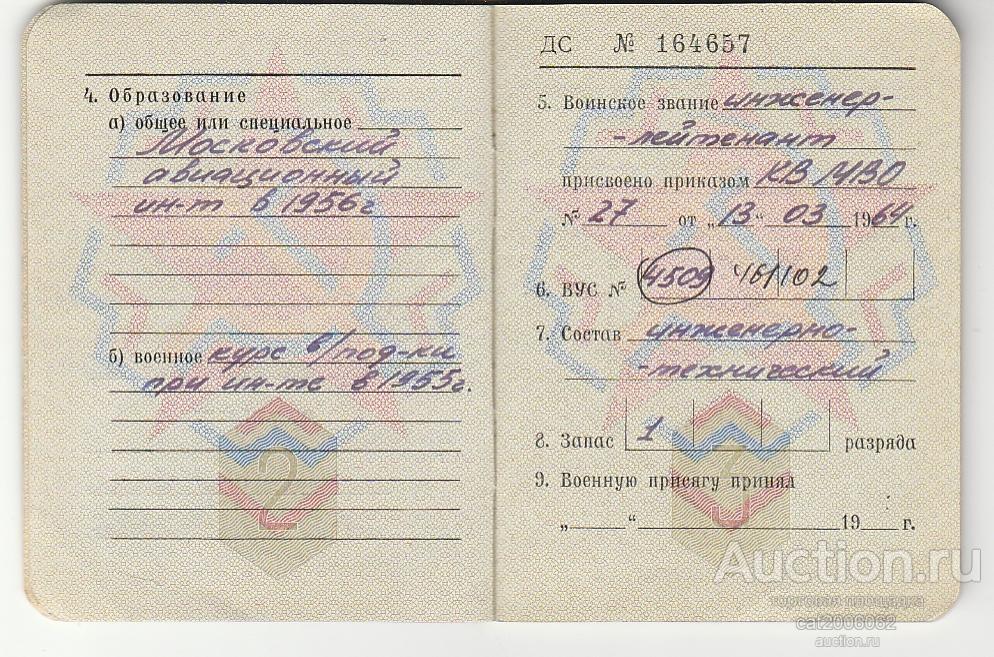 4. Образование
а) общее или специальное
Московский
авиационный
ин-т в 1956г
б) военное курс в/под-ки
при ин-те в 1955г.
2
ДС № 164657
5. Воинское звание инженер-
-лейтенант
присвоено приказом КВ МВО
№ 27 от „13“ 03 1964 г.
6. ВУС № 4509 461102
7. Состав инженерно-
-технический
8. Запас 1 разряда
9. Военную присягу принял
„ “ 19 г.
3
Auction.ru
торговая площадка
cat2006062
auction.ru